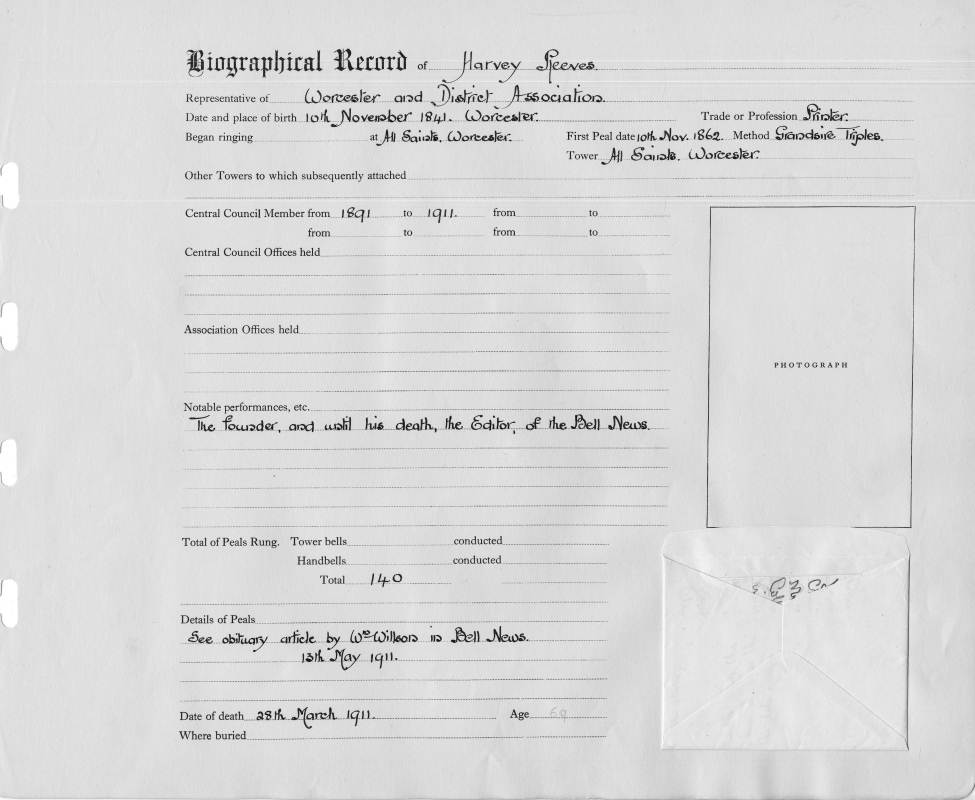 Biographical Record of Harvey Reeves.
Representative of Worcester and District Association.
Date and place of birth 10th November 1841. Worcester. Trade or Profession Printer.
Began ringing at All Saints, Worcester. First Peal date 10th Nov. 1862. Method Grandsire Triples.
Tower All Saints. Worcester.
Other Towers to which subsequently attached
Central Council Member from 1891 to 1911. from to
from to from to
Central Council Offices held
PHOTOGRAPH
Association Offices held
Notable performances, etc.
The founder, and until his death, the Editor, of the Bell News.
Total of Peals Rung. Tower bells conducted
Handbells conducted
Total 140
Details of Peals
See obituary article by Wm Willson in Bell News.
13th May 1911.
Date of death 28th March 1911. Age 69
Where buried